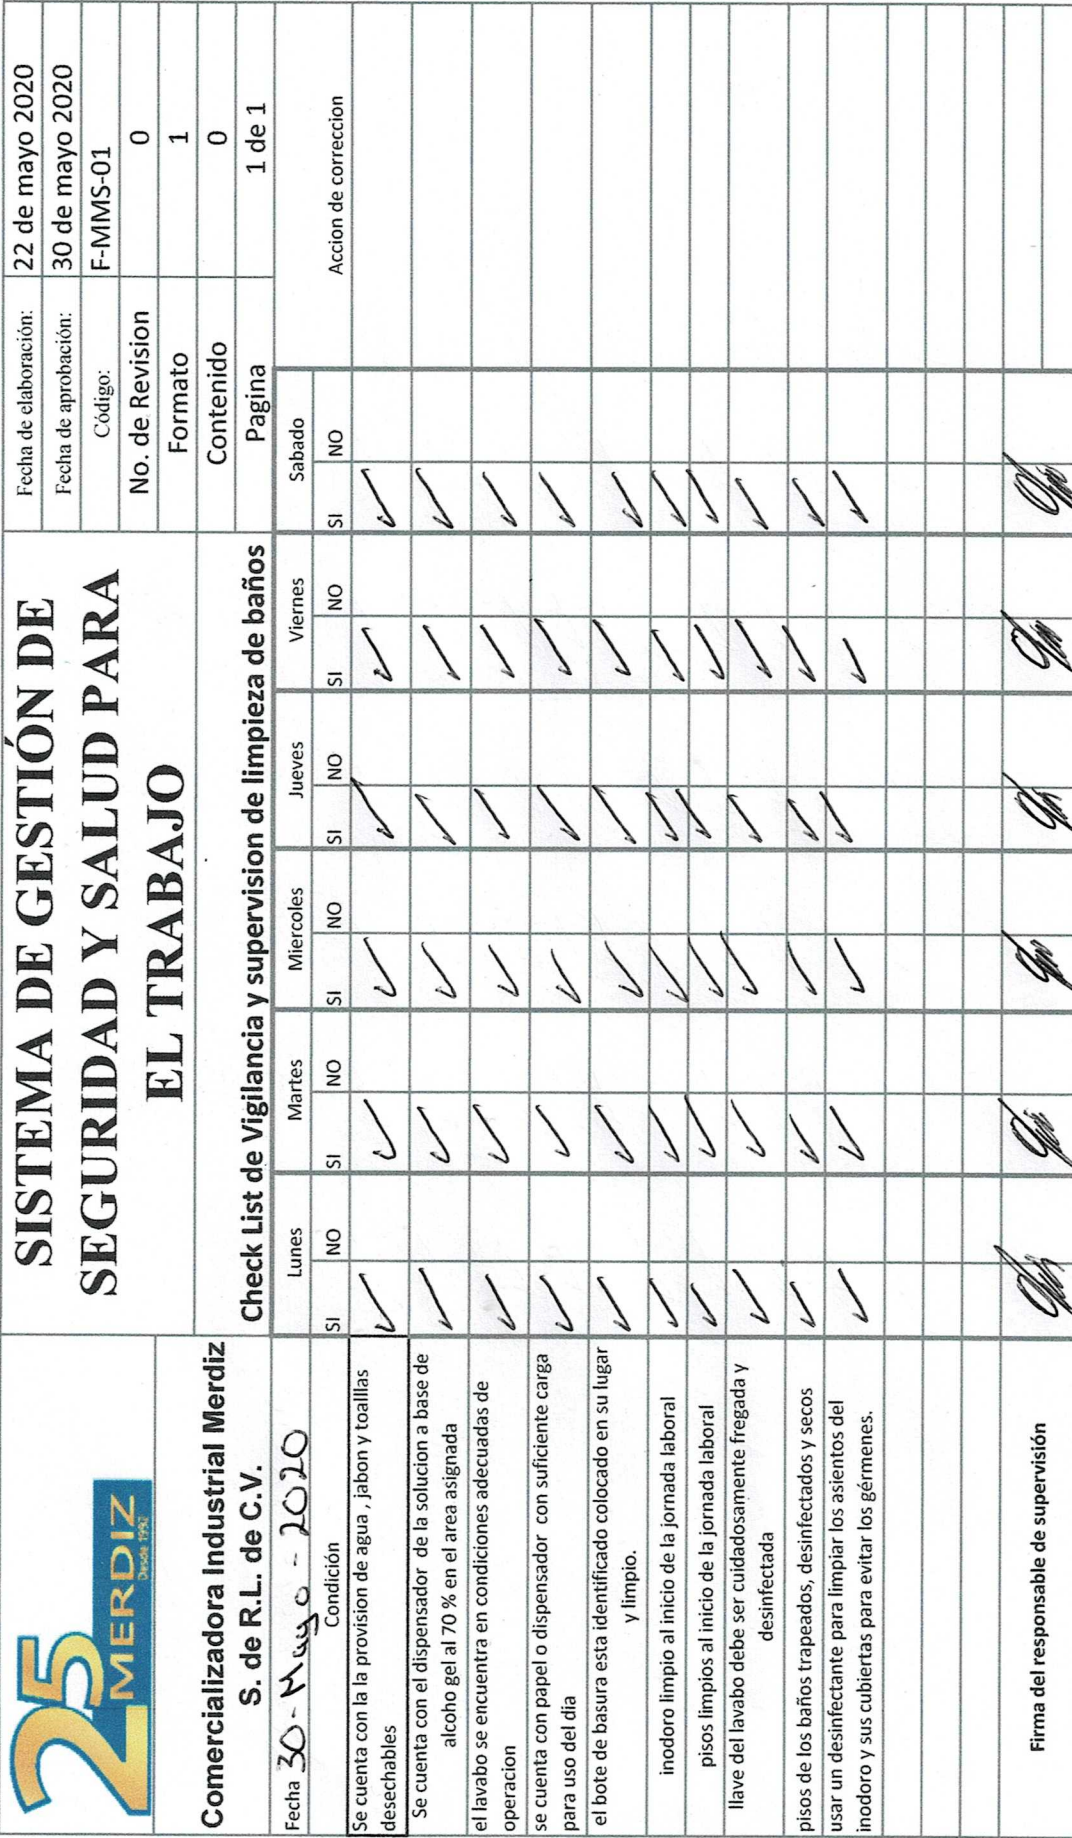 25
MERDIZ
Desde 1992
SISTEMA DE GESTIÓN DE
SEGURIDAD Y SALUD PARA
EL TRABAJO
Fecha de elaboración: 22 de mayo 2020
Fecha de aprobación: 30 de mayo 2020
Código: F-MMS-01
No. de Revision 0
Formato 1
Contenido 0
Pagina 1 de 1
Comercializadora Industrial Merdiz
S. de R.L. de C.V.
Check List de Vigilancia y supervision de limpieza de baños
Fecha 30-Mayo-2020
Condición
Lunes Martes Miercoles Jueves Viernes Sabado
SI NO SI NO SI NO SI NO SI NO SI NO
Accion de correccion
Se cuenta con la la provision de agua , jabon y toalllas
desechables
✓ ✓ ✓ ✓ ✓ ✓
Se cuenta con el dispensador de la solucion a base de
alcoho gel al 70 % en el area asignada
✓ ✓ ✓ ✓ ✓ ✓
el lavabo se encuentra en condiciones adecuadas de
operacion
✓ ✓ ✓ ✓ ✓ ✓
se cuenta con papel o dispensador con suficiente carga
para uso del dia
✓ ✓ ✓ ✓ ✓ ✓
el bote de basura esta identificado colocado en su lugar
y limpio.
✓ ✓ ✓ ✓ ✓ ✓
inodoro limpio al inicio de la jornada laboral
✓ ✓ ✓ ✓ ✓ ✓
pisos limpios al inicio de la jornada laboral
✓ ✓ ✓ ✓ ✓ ✓
llave del lavabo debe ser cuidadosamente fregada y
desinfectada
✓ ✓ ✓ ✓ ✓ ✓
pisos de los baños trapeados, desinfectados y secos
✓ ✓ ✓ ✓ ✓ ✓
usar un desinfectante para limpiar los asientos del
inodoro y sus cubiertas para evitar los gérmenes.
✓ ✓ ✓ ✓ ✓ ✓
Firma del responsable de supervisión